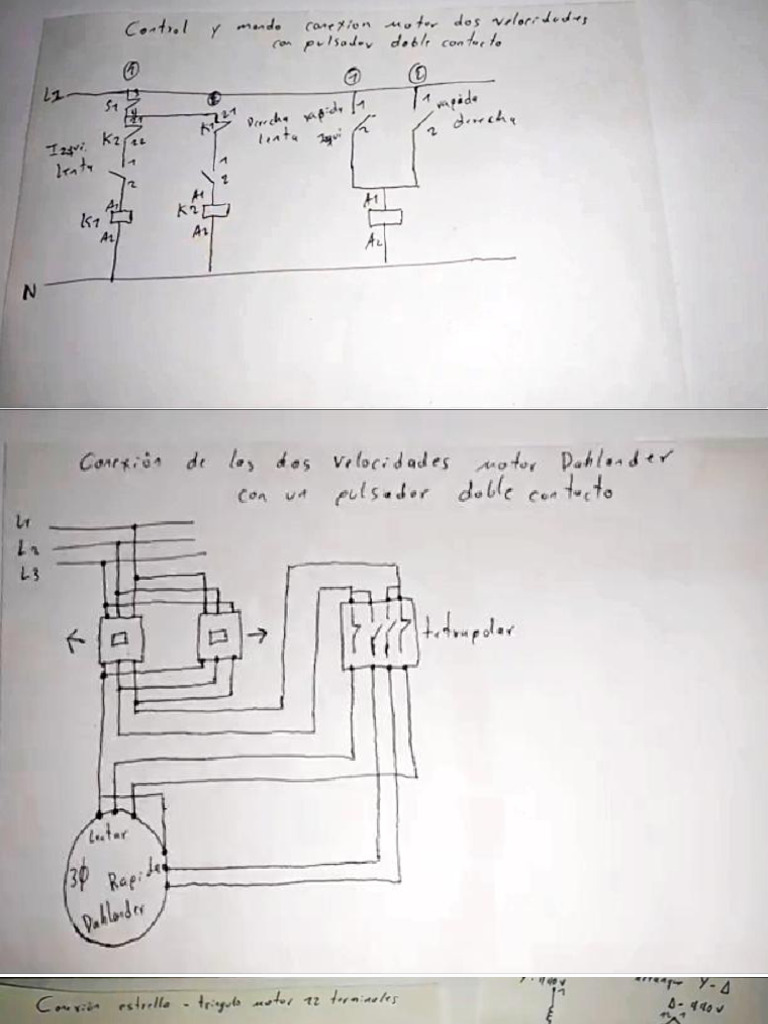 Control y mando conexion motor dos velocidades
con pulsador doble contacto
1 1 2
L1
3
S1
4
21
K2
22
Izqui.
lenta
1
2
A1
K1
A2
21
K1
Derecha
lenta
1
2
A1
K2
A2
rapida
Izqui
1
2
1
2
rapida
derecha
A1
A2
N
Conexión de las dos velocidades motor Dahlander
con un pulsador doble contacto
L1
L2
L3
tetrapolar
Lentar
3Φ Rapida
Dahlander
Conexión estrella - triangulo motor 12 terminales
Y-440V
1
arranque Y-Δ
Δ-440V
12 1